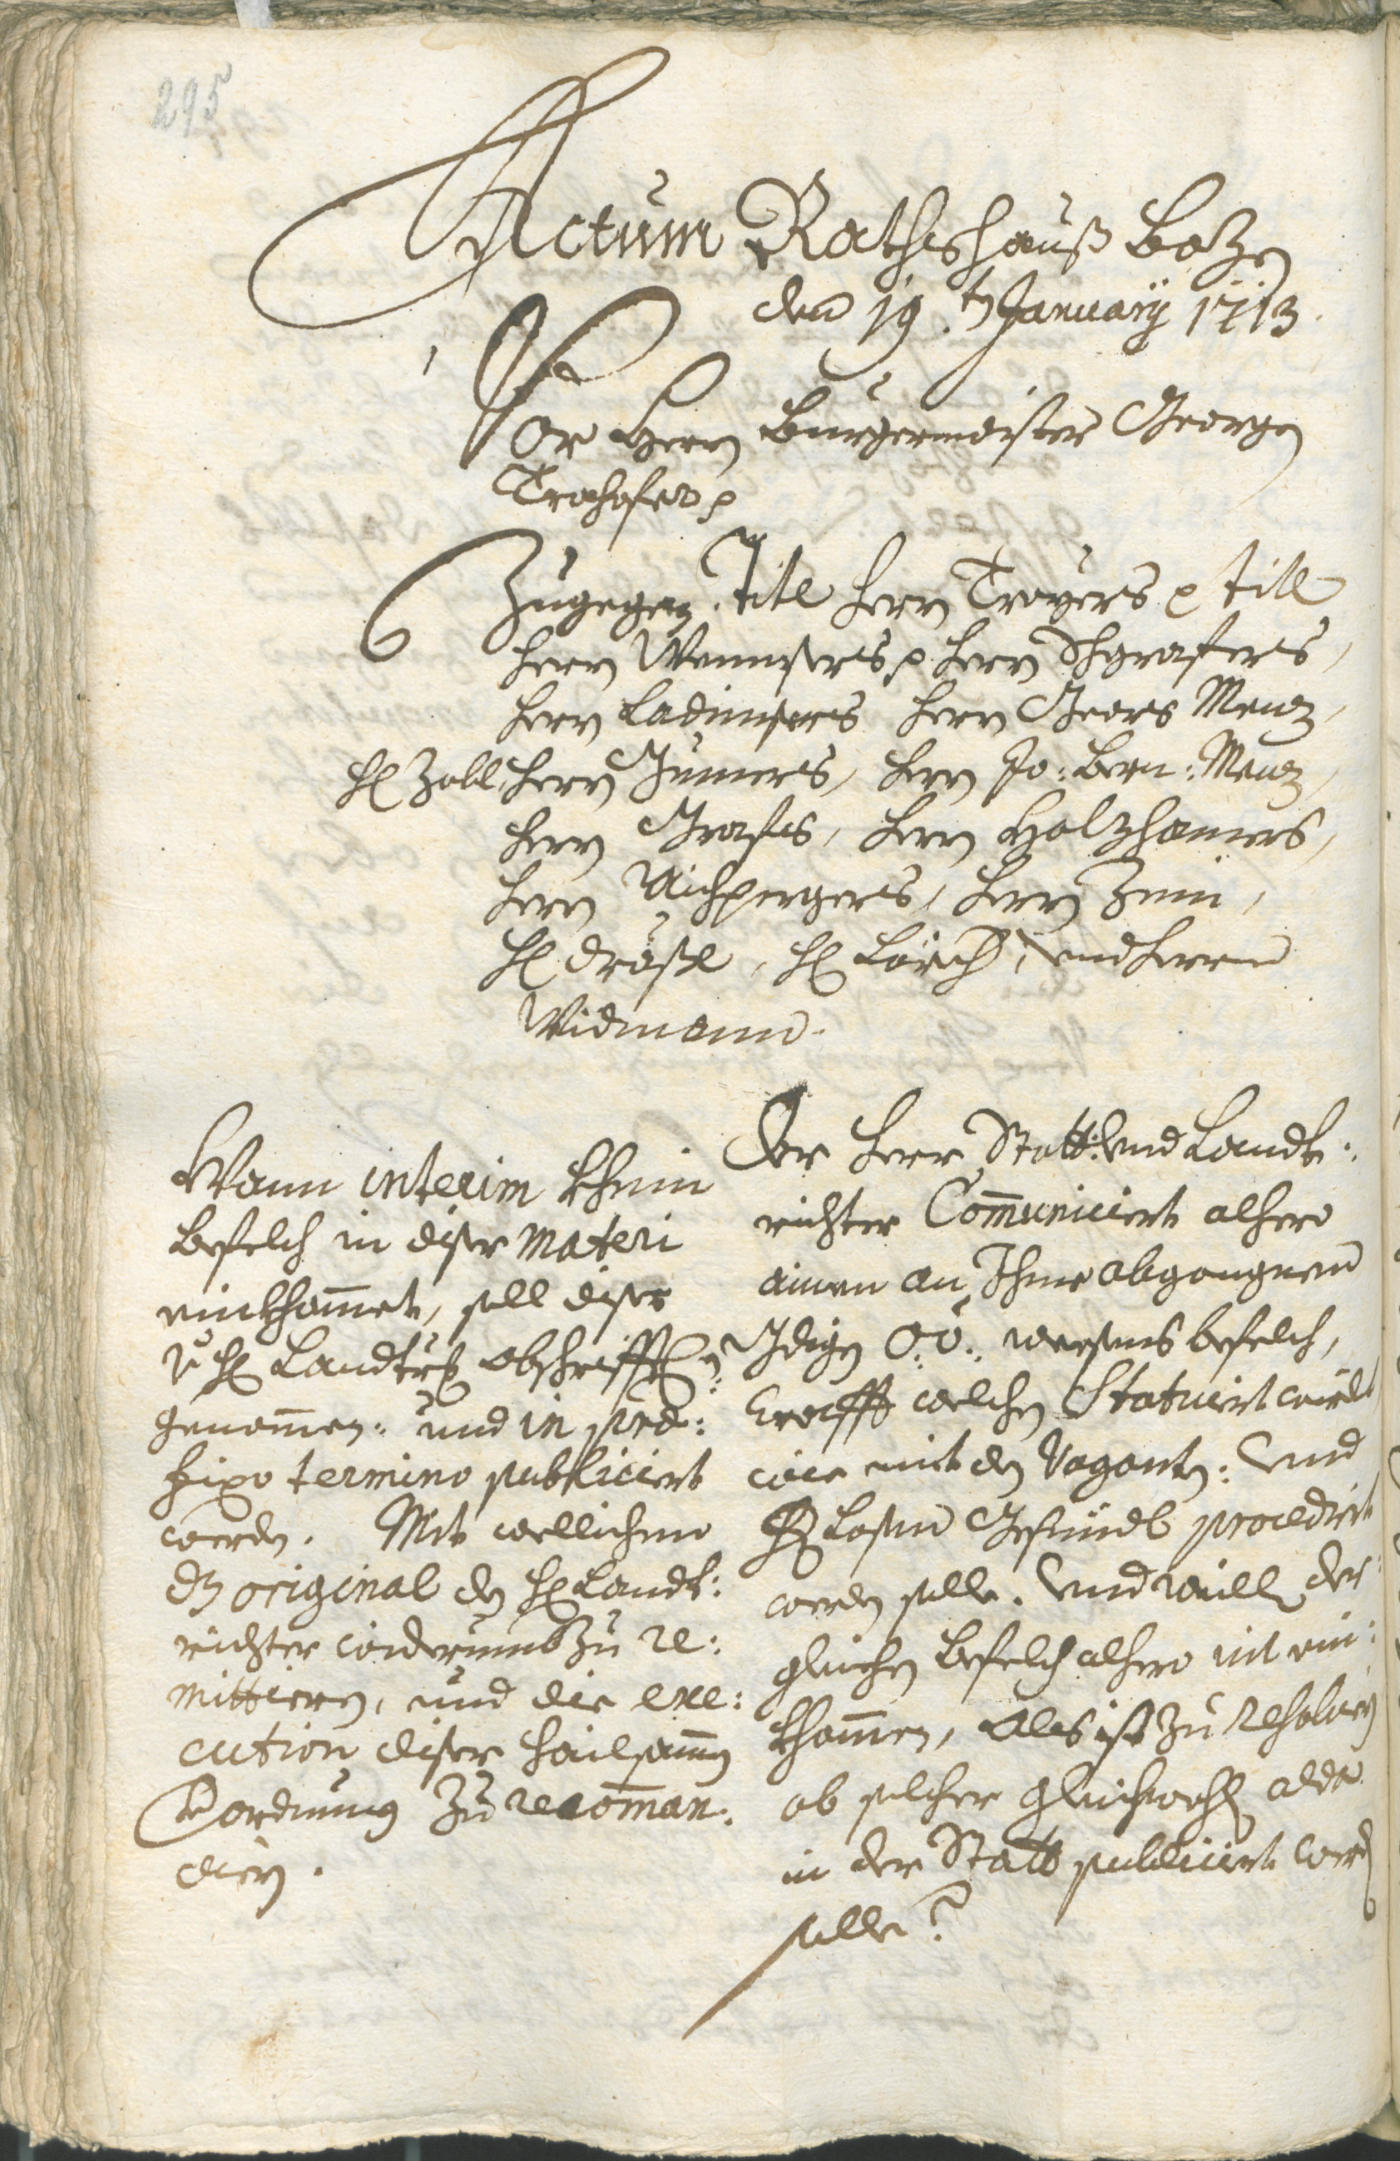 295
Actum Rathshauß Bozen
den 19.ten January 1713.
Vor Herrn Burgermeister Georgen
Trahofer p
Zugegen. Titl Herrn Troyers p titl
Herrn Wenssers p Herrn Schgraffers,
Herrn Ladinsers Herrn Georg Menz,
Hl Zoll. Herrn Zumers, Herrn Jo: Bern: Menz,
Herrn Grafs, Herrn Holzhamers,
Herrn Aichpergers, Herrn Zeni,
Hl Dräxl, Hl Lörch, und Herrn
Widmann.
Der Herr Statt: und Landt:
richter Communiciert alhero
ainen an Ihme abgangnen
O: Ö: weesens befelch,
Crafft welchen Statuiert wirdt
wie mit den Vaganten: und
Herrlosen Gesündl procediert
werden solle. Und weillen der:
gleichen befelch alhero nit ein:
khommen, Als ist zu resolvirn
ob solcher gleichwohl alda
in der Statt publiciert werden
solle?
Wann interim khein
befelch in diser Materi
einkhommet, soll diser
v Hl Landtrichter abschrifftlich
genommen: und in præ:
fixo termino publiciert
werden. Mit wellichem
dz original den Hl Landt:
richter widerumb zu re:
mittieren, und die exe:
cution diser hailsamen
Verordnung zu recoman:
diern.